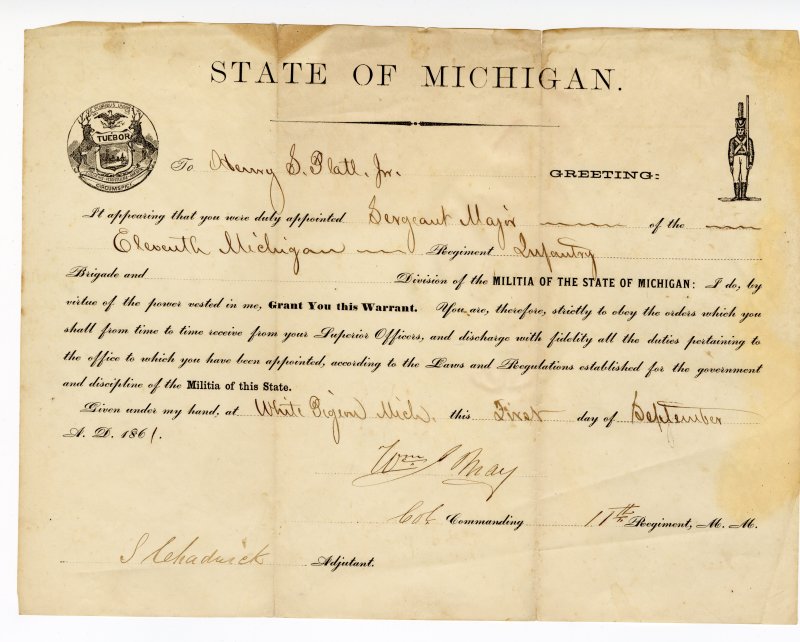 STATE OF MICHIGAN.
TUEBOR
CIRCUMSPICE
To Henry S. Platt, Jr. GREETING:
It appearing that you were duly appointed Sergeant Major of the
Eleventh Michigan Regiment Infantry
Brigade and Division of the MILITIA OF THE STATE OF MICHIGAN: I do, by
virtue of the power vested in me, Grant You this Warrant. You are, therefore, strictly to obey the orders which you
shall from time to time receive from your Superior Officers, and discharge with fidelity all the duties pertaining to
the office to which you have been appointed, according to the Laws and Regulations established for the government
and discipline of the Militia of this State.
Given under my hand, at White Pigeon Mich. this First day of September
A. D. 1861.
Wm J May
Col. Commanding 11th Regiment, M. M.
S Chadwick Adjutant.